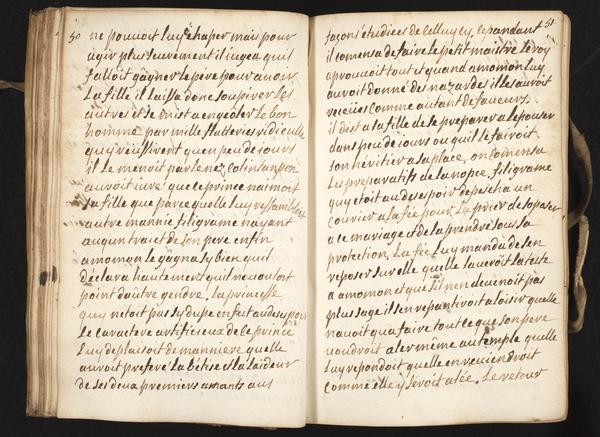 50 ne pouvoit luy échaper mais pour
agir plus seurement il iugea quil
falloit gagner le pere pour avoir
la fille il laissa donc soupirer les
autres et se mist a engeoler le bon
homme par mille flatteries ridiculle
quy réüssirent qu en peu de jours
il le menoit par le nez, Colin tampon
auroit iuré que ce prince naimoit
sa fille que parce quelle luy ressembloit
autre mannie filigrame nayant
augun traict de son pere enfin
amomon le gagna sy bien quil
déclara hautement quil ne vouloit
point dautre gendre. la princesse
quy netoit pas sy dupe en fut au desespoir
le caractere artificieux de ce prince
luy deplaisoit de manniere quelle
auroit preferé la bétise et la laideur
de ses deux premiers amants aus
51
façons étudiées de celluy cy, cependant
il comensa de faire le petit maistre le roy
aprouvoit tout et quand amomon luy
auroit donné des nazardes il les auroit
receües comme autant de faveurs.
il dist a sa fille de se preparer a lepouser
dans peu de jours ou quil le fairoit
son héritier a sa place, on comensa
les preparatifs de la nopce, filigrame
quy etoit au desespoir depescha un
courier a la fée pour la prier de soposer
a ce mariage et de la prendre sous sa
protection, la fée luy manda de sen
reposer sur elle quelle laveroit la teste
a amomon et que sil nen devenoit pas
plus sage il sen repantiroit a loisir quelle
navoit qua faire tout ce que son pere
voudroit aler même au temple quelle
luy repondoit quelle en reviendroit
comme elle y seroit alée. Le retour